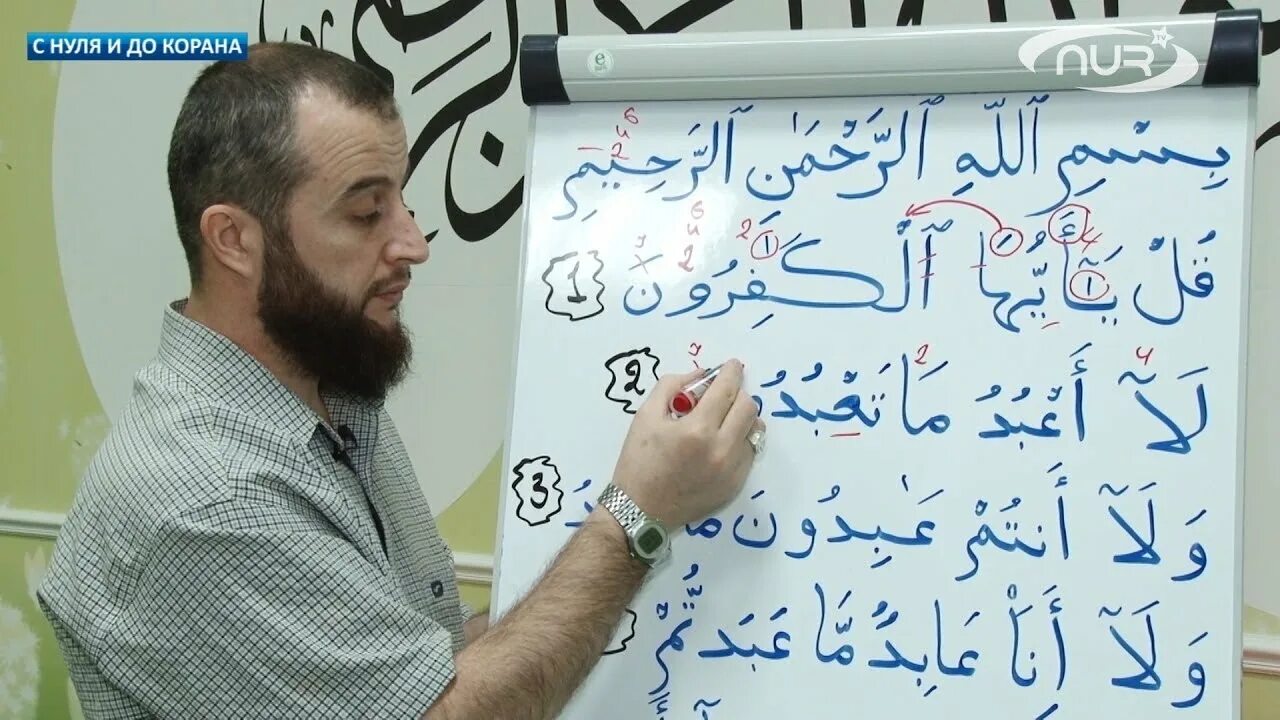 С НУЛЯ И ДО КОРАНА
NUR
بِسْمِ ٱللَّهِ ٱلرَّحْمَٰنِ ٱلرَّحِيمِ
قُلْ يَٰٓأَيُّهَا ٱلْكَٰفِرُونَ 1
لَآ أَعْبُدُ مَا تَعْبُدُونَ 2
وَلَآ أَنتُمْ عَٰبِدُونَ مَآ 3
وَلَآ أَنَا۠ عَابِدٌ مَّا عَبَدتُّمْ